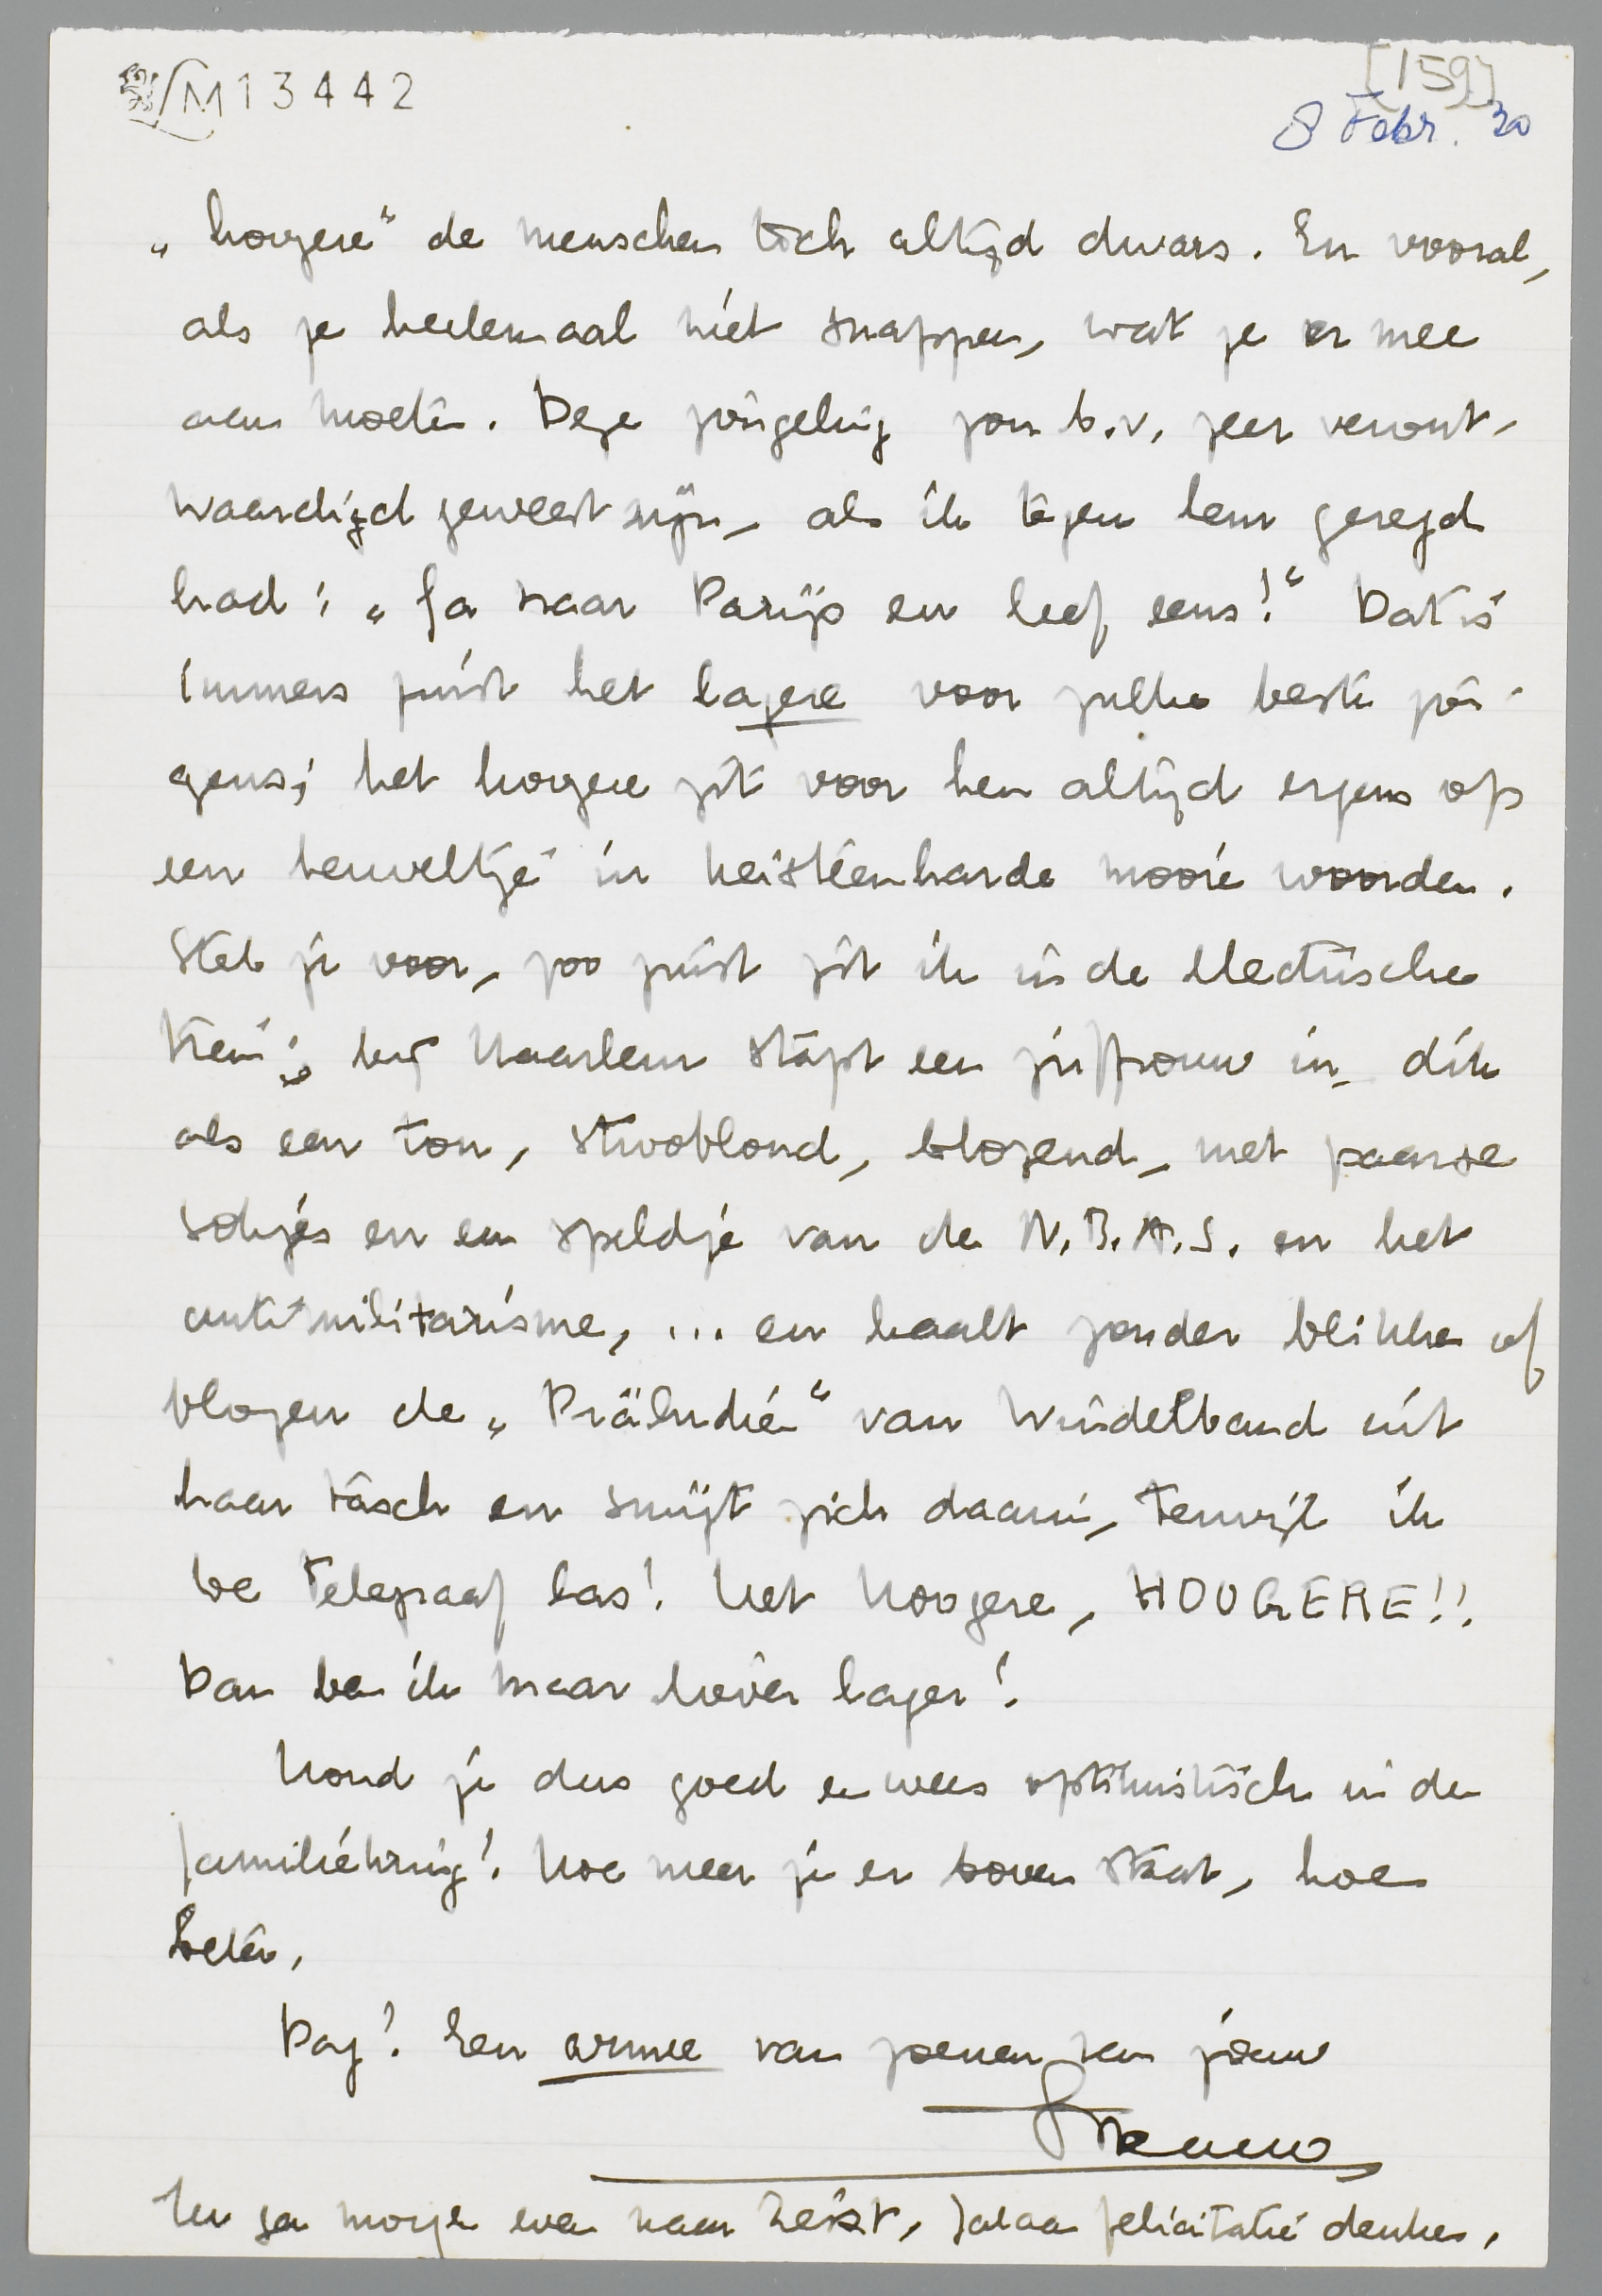 M13442
[159]
8 Febr. 30
„hoogere“ de menschen toch altijd dwars. En vooral,
als ze heelemaal niet snappen, wat ze er mee
aan moeten. Deze jongeling zou b.v. zeer veront-
waardigd geweest zijn, als ik tegen hem gezegd
had: „Ga naar Parijs en leef eens!“ Dat is
immers juist het lagere voor zulke beste jon-
gens; het hoogere zit voor hen altijd ergens op
een heuveltje in keisteenharde mooie woorden.
Stel je voor, zoo juist zit ik in de electrische
trein; bij Haarlem stapt een juffrouw in, dik
als een ton, strooblond, blozend, met paarse
sokjes en een speldje van de N.B.A.S. en het
antimilitarisme, ... en haalt zonder blikken of
blozen de „Präludien“ van Windelband uit
haar tasch en smijt zich daarin, terwijl ik
De Telegraaf las! Het hoogere, HOOGERE!!
Dan ben ik maar liever lager!
Houd je dus goed en wees optimistisch in den
familiekring! Hoe meer je er boven staat, hoe
beter.
Dag! Een armee van zoenen van jouw
Menno
Ik ga morgen even naar Zeist, Jalaa felicitatie denken.